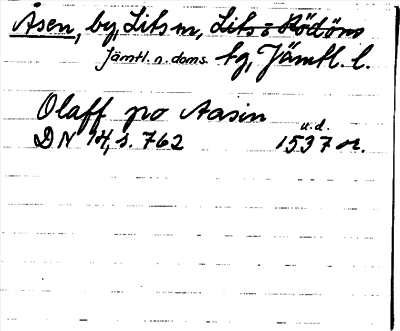 Åsen, by, Lits sn, Lits o Rödöns
Jämtl. n. doms. tg, Jämtl. l.
Olaff po Aasin
DN 14, s. 762 u.d. 1537 or.